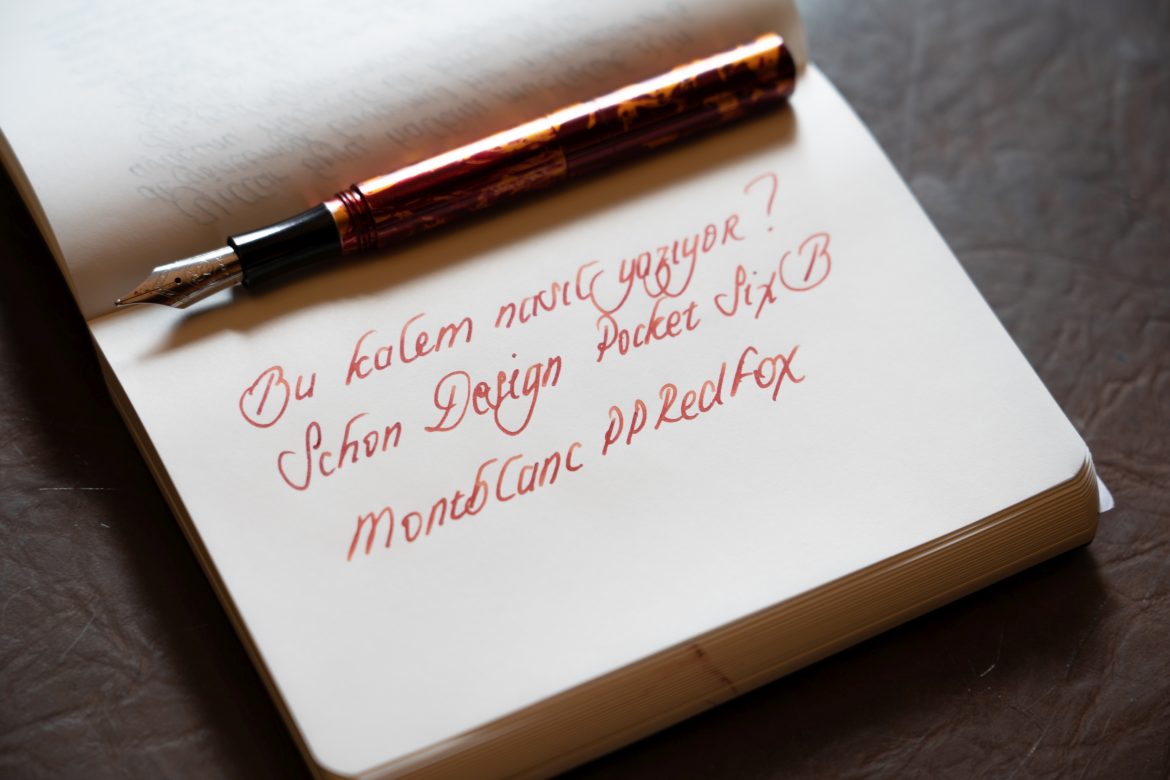 Bu kalem nasıl yazıyor?
Schon Design Pocket Six B
Montblanc PP Red Fox